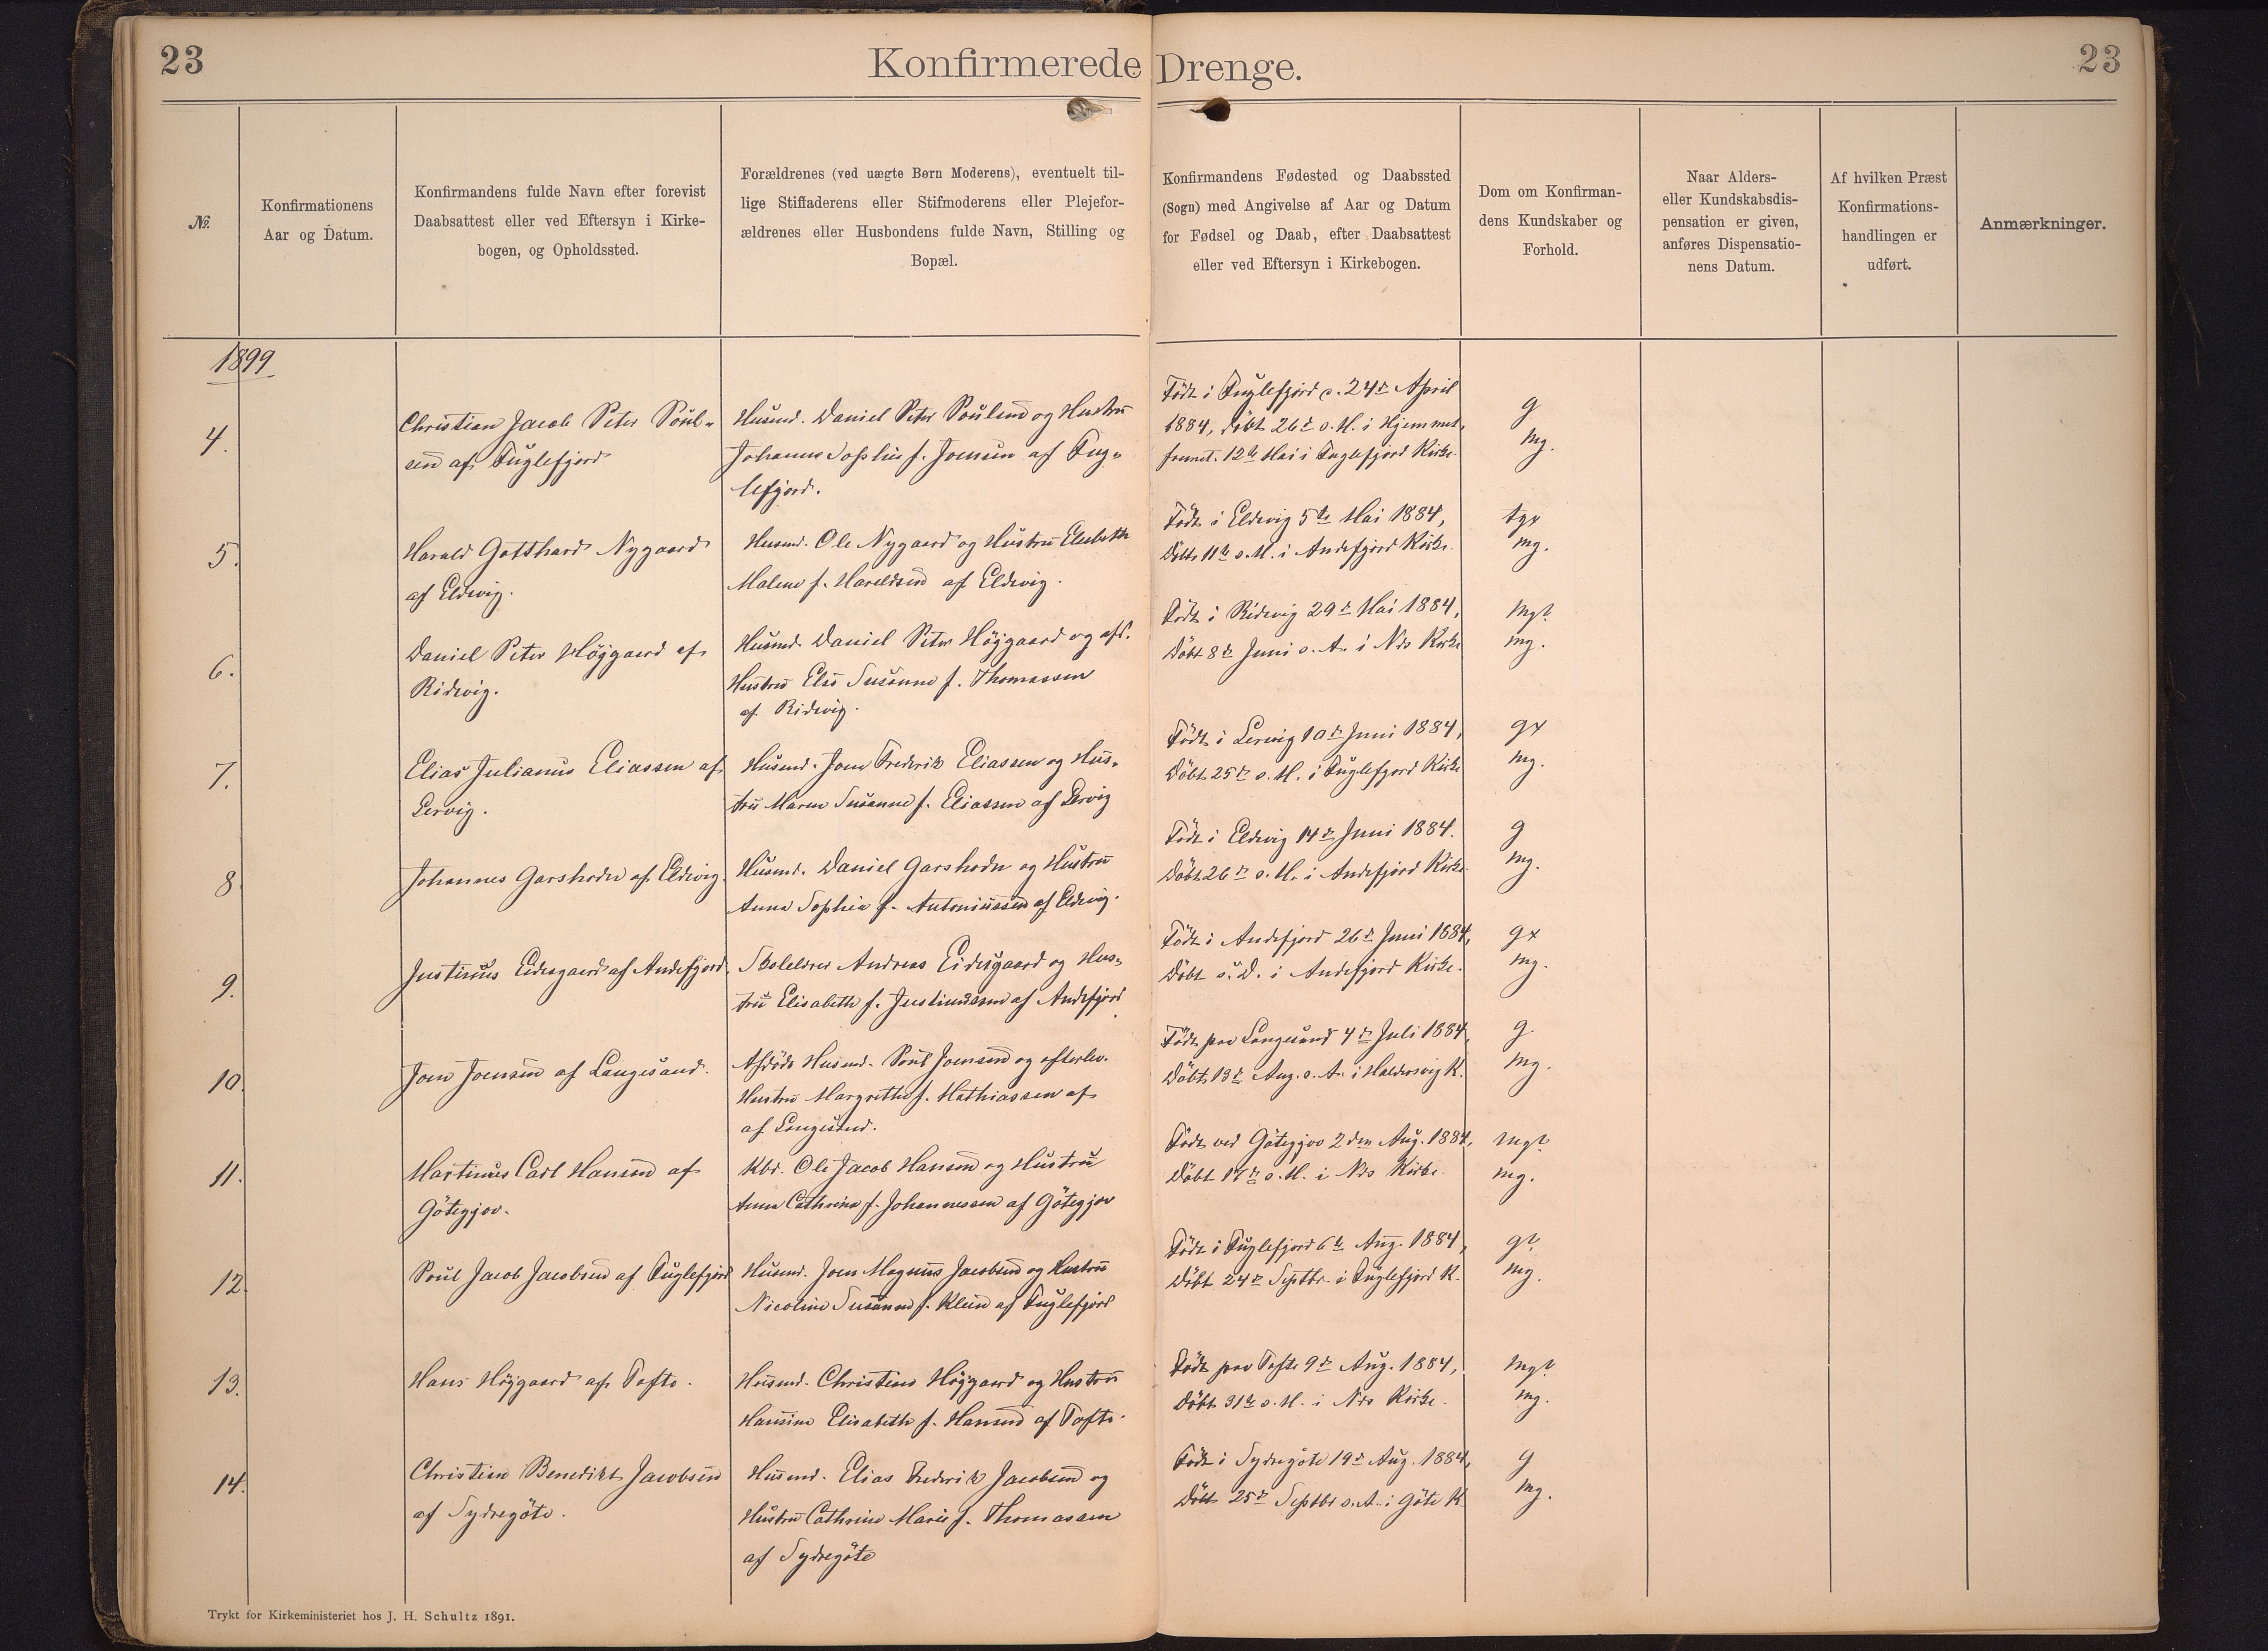 23
Konfirmerede Drenge.
23
№.
Konfirmationens
Aar og Datum.
Konfirmandens fulde Navn efter forevist
Daabsattest eller ved Eftersyn i Kirke-
bogen, og Opholdssted.
Forældrenes (ved uægte Børn Moderens), eventuelt til-
lige Stiffaderens eller Stifmoderens eller Plejefor-
ældrenes eller Husbondens fulde Navn, Stilling og
Bopæl.
Konfirmandens Fødested og Daabssted
(Sogn) med Angivelse af Aar og Datum
for Fødsel og Daab, efter Daabsattest
eller ved Eftersyn i Kirkebogen.
Dom om Konfirman-
dens Kundskaber og
Forhold.
Naar Alders-
eller Kundskabsdis-
pensation er given,
anføres Dispensatio-
nens Datum.
Af hvilken Præst
Konfirmations-
handlingen er
udført.
Anmærkninger.
1899
4.
Christian Jacob Peter Poul-
sen af Fuglefjord
Husmd. Daniel Peter Poulsen og Hustru
Johanne Sophie f. Joensen af Fug-
lefjord.
Födt i Fuglefjord d. 24d April
1884, döbt 26d s. M. i Hjemmet,
fremst. 12te Mai i Fuglefjord Kirke.
g
mg.
5.
Harald Gotthard Nygaard
af Eldevig.
Husmd. Ole Nygaard og Hustru Elsebeth
Malene f. Haraldsen af Eldevig.
Födt i Eldevig 5te Mai 1884,
Döbt 11te s. M. i Andefjord Kirke.
tgx
mg.
6.
Daniel Peter Höjgaard af
Ridevig.
Husmd. Daniel Peter Höjgaard og afd.
Hustru Else Susanne f. Thomassen
af Ridevig.
Födt i Ridevig 29d Mai 1884,
Döbt 8d Juni s. A. i Nds Kirke
mg?
mg.
7.
Elias Julianus Eliassen af
Lervig.
Husmd. Joen Frederik Eliassen og Hus-
tru Maren Susanne f. Eliassen af Lervig
Födt i Lervig 10d Juni 1884,
Döbt 25d s. M. i Fuglefjord Kirke
gx
mg.
8.
Johannes Garshodn af Eldevig.
Husmd. Daniel Garshodn og Hustru
Anna Sophia f. Antoniussen af Eldevig.
Födt i Eldevig 14d Juni 1884.
Döbt 26d s. M. i Andefjord Kirke.
g
mg.
9.
Justinus Eidesgaard af Andefjord
Skolelærer Andreas Eidesgaard og Hus-
tru Elisabeth f. Justinussen af Andefjord
Födt i Andefjord 26d Juni 1884,
Döbt s. D. i Andefjord Kirke.
gx
mg.
10.
Joen Joensen af Langesand.
Afdöde Husmd. Poul Joensen og efterlev.
Hustru Margrethe f. Mathiassen af
af Langesand.
Födt paa Langesand 4d Juli 1884,
Döbt 13d Aug. s. A. i Haldersvig K.
g.
mg.
11.
Martinus Carl Hansen af
Götegjov.
Kbr. Ole Jacob Hansen og Hustru
Anna Cathrine f. Johannessen af Götegjov
Födt ved Götegjov 2den Aug. 1884,
Döbt 17d s. M. i Nds Kirke.
mg?
mg.
12.
Poul Jacob Jacobsen af Fuglefjord
Husmd. Joen Magnus Jacobsen og Hustru
Nicoline Susanne f. Klein af Fuglefjord
Födt i Fuglefjord 6te Aug. 1884,
Döbt 24d Septbr. i Fuglefjord K.
g?
mg.
13.
Hans Höjgaard af Tofte.
Husmd. Christian Höjgaard og Hustru
Hansine Elisabeth f. Hansen af Tofte.
Födt paa Tofte 9d Aug. 1884,
Döbt 31te s. M. i Nds Kirke.
mg?
mg.
14.
Christian Benedikt Jacobsen
af Sydregöte.
Husmd. Elias Frederik Jacobsen og
Hustru Cathrine Marie f. Thomassen
af Sydregöte
Födt i Sydregöte 19d Aug. 1884,
Döbt 25d Septbr s. A. i Göte K.
g
mg.
Trykt for Kirkeministeriet hos J. H. Schultz 1891.